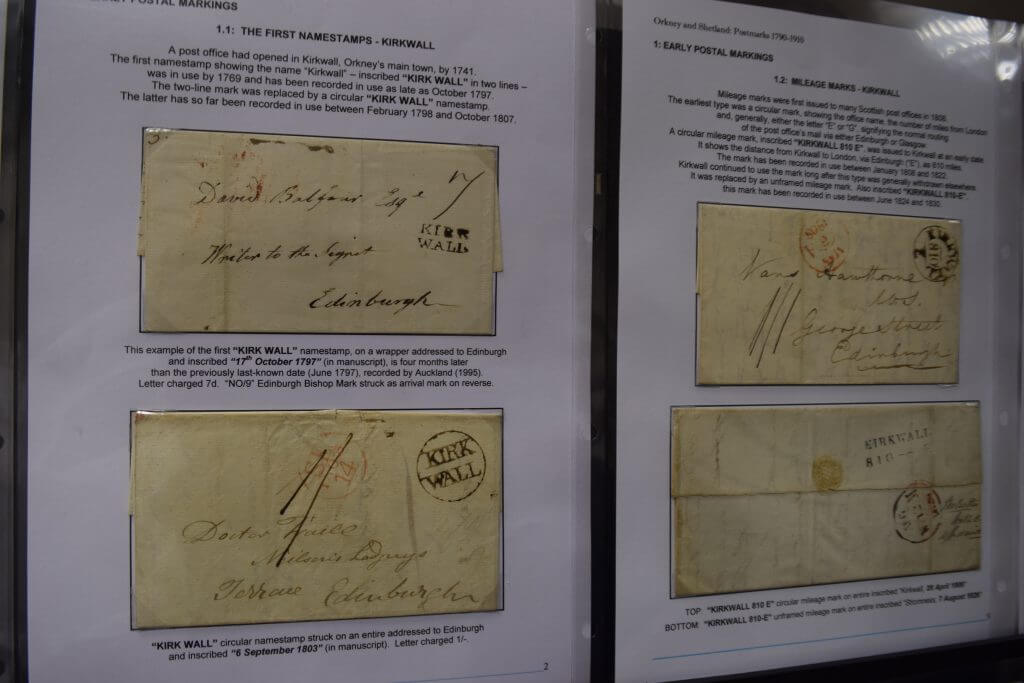 POSTAL MARKINGS
1.1: THE FIRST NAMESTAMPS - KIRKWALL
A post office had opened in Kirkwall, Orkney's main town, by 1741.
The first namestamp showing the name "Kirkwall" – inscribed "KIRK WALL" in two lines –
was in use by 1769 and has been recorded in use as late as October 1797.
The two-line mark was replaced by a circular "KIRK WALL" namestamp.
The latter has so far been recorded in use between February 1798 and October 1807.
David Balfour Esqe
7
KIRK
WALL
Writer to the Signet
Edinburgh
This example of the first "KIRK WALL" namestamp, on a wrapper addressed to Edinburgh
and inscribed "17th October 1797" (in manuscript), is four months later
than the previously last-known date (June 1797), recorded by Auckland (1995).
Letter charged 7d. "NO/9" Edinburgh Bishop Mark struck as arrival mark on reverse.
14
KIRK
WALL
Doctor Traill
Lodgings
Terrace Edinburgh
"KIRK WALL" circular namestamp struck on an entire addressed to Edinburgh
and inscribed "6 September 1803" (in manuscript). Letter charged 1/-.
2
Orkney and Shetland: Postmarks 1790-1916
1: EARLY POSTAL MARKINGS
1.2: MILEAGE MARKS - KIRKWALL
Mileage marks were first issued to many Scottish post offices in 1808.
The earliest type was a circular mark, showing the office name, the number of miles from London
and, generally, either the letter "E" or "G", signifying the normal routing
of the post office's mail via either Edinburgh or Glasgow.
A circular mileage mark, inscribed "KIRKWALL 810 E", was issued to Kirkwall at an early date.
It shows the distance from Kirkwall to London, via Edinburgh ("E"), as 810 miles.
The mark has been recorded in use between January 1808 and 1822.
Kirkwall continued to use the mark long after this type was generally withdrawn elsewhere.
It was replaced by an unframed mileage mark. Also inscribed "KIRKWALL 810-E",
this mark has been recorded in use between June 1824 and 1830.
Hawthorne
George Street
Edinburgh
KIRKWALL
810
TOP: "KIRKWALL 810 E" circular mileage mark on entire inscribed "Kirkwall,
BOTTOM: "KIRKWALL 810-E" unframed mileage mark on entire inscribed "Stromness, 7 August 1826"